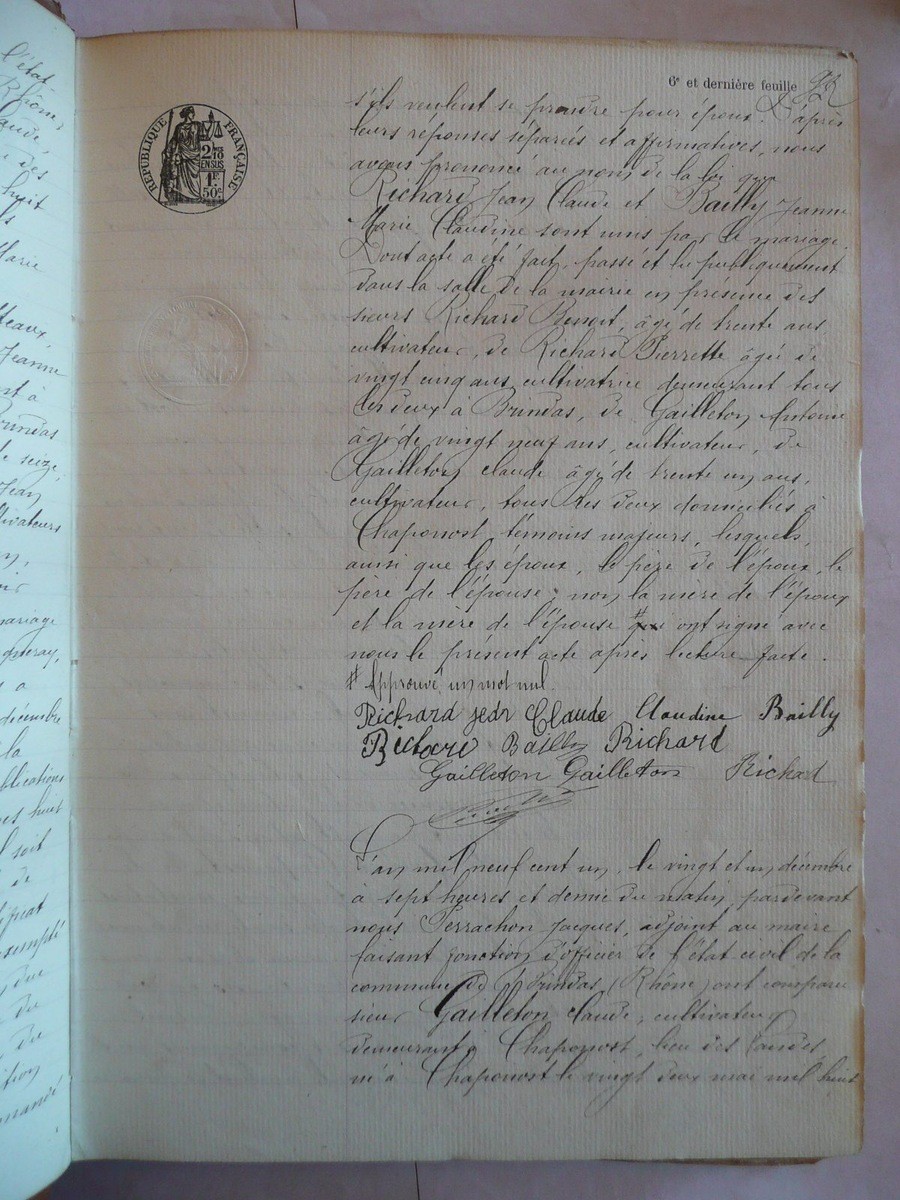 l'état
Rhône
huit
Marie
Jeanne
nt à
Brindas
e seize
Jean
ltivateurs
mariage
a
décembre
la
publications
huit
soit
de
du
du
6e et dernière feuille 92
RÉPUBLIQUE FRANÇAISE
2/10
EN SUS
1F
50c
s'ils veulent se prendre pour époux. D'après
leurs réponses séparées et affirmatives, nous
avons prononcé au nom de la loi que
Richard Jean Claude et Bailly Jeanne
Marie Claudine sont unis par le mariage.
Dont acte a été fait, passé et lu publiquement
dans la salle de la mairie en présence des
sieurs Richard Benoit, âgé de trente ans
cultivateur, de Richard Pierrette âgée de
vingt cinq ans, cultivatrice demeurant tous
les deux à Brindas, de Gailleton Antoine
âgé de vingt neuf ans, cultivateur, de
Gailleton Claude âgé de trente un ans,
cultivateur, tous les deux domiciliés à
Chaponost, témoins majeurs, lesquels,
ainsi que les époux, le père de l'époux, le
père de l'épouse; non la mère de l'époux
et la mère de l'épouse # qui ont signé avec
nous le présent acte après lecture faite.
# Approuvé un mot nul.
Richard Jean Claude Claudine Bailly
Richard Bailly Richard
Gailleton Gailleton Richard
L'an mil neuf cent un, le vingt et un décembre
à sept heures et demie du matin, pardevant
nous Perrachon Jacques, adjoint au maire
faisant fonction d'officier de l'état civil de la
commune de Brindas (Rhône) ont comparu
sieur Gailleton Claude, cultivateur
demeurant à Chaponost, lieu des Landes,
né à Chaponost le vingt deux mai mil huit